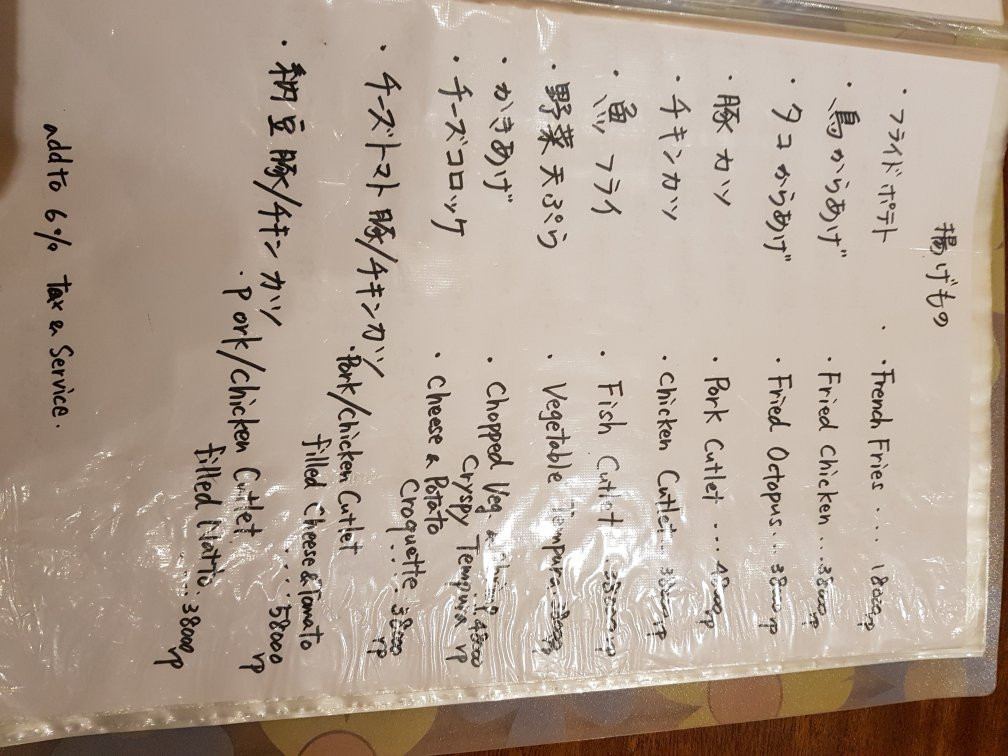 揚げもの
・フライドポテト ・French Fries .... 18000rp
・鳥からあげ ・Fried Chicken ... 38000rp
・タコからあげ ・Fried Octopus... 38000rp
・豚カツ ・Pork Cutlet ... 48000rp
・チキンカツ ・Chicken Cutlet... 38000rp
・魚フライ ・Fish Cutlet ... 38000rp
・野菜天ぷら ・Vegetable Tempura... 38000rp
・かきあげ ・Chopped Veg. &
Cryspy Tempura 48000 rp
・チーズコロッケ ・Cheese & Potato
Croquette.... 38000 rp
・チーズトマト豚/チキンカツ ・Pork/Chicken Cutlet
filled Cheese & Tomato
.... 58000 rp
・納豆豚/チキンカツ ・Pork/Chicken Cutlet
filled Natto... 38000 rp
add to 6% tax & Service.